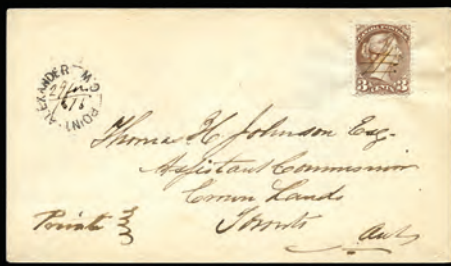 ALEXANDER M.O POINT
3 CENTS 3
Thomas H. Johnson Esq.
Assistant Commissioner
Crown Lands
Toronto
Private
Ont